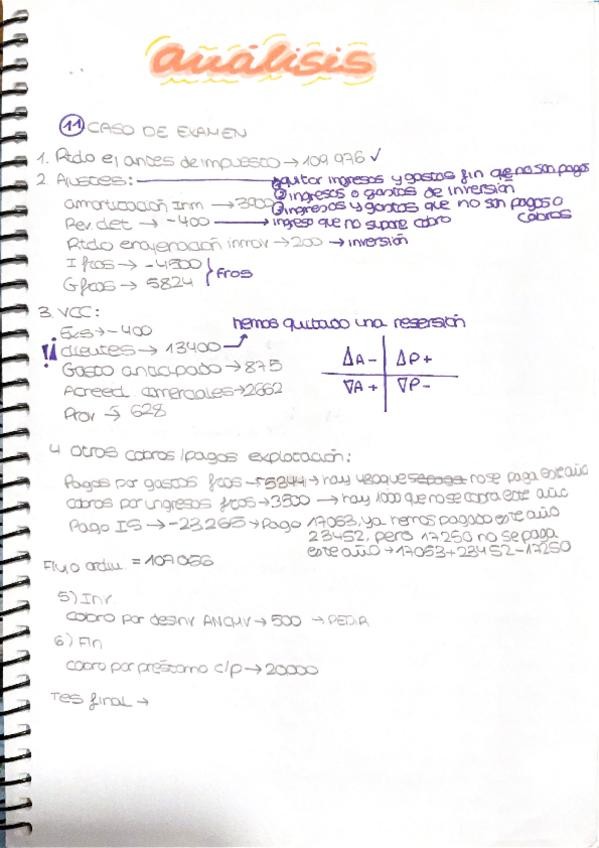 análisis
11 CASO DE EXAMEN
1. Rtdo ej antes de impuesto → 109 976 ✓
2 Ajustes: → ① quitar ingresos y gastos fin que no son pagos
② ingresos o gastos de inversión
amortización Inm → 3900 ③ ingresos y gastos que no son pagos o cobros
Rev. det → -400 → ingreso que no supone cobro
Rtdo enajenación inmov → 200 → inversión
I fros → -4500 } Fros
G fros → 5824
3. VCC: hemos quitado una reversión
Exs → -400
!! clientes → 13400
Gasto anticipado → 875
Acreed. comerciales → 2662
Prov → 628
ΔA - ΔP +
∇A + ∇P -
4 Otros cobros/pagos explotación:
Pagos por gastos fros → 5344 → hay 480 que no se paga este año
cobros por ingresos fros → 3500 → hay 1000 que no se cobra este año
Pago IS → -23.265 → Pago 17053, ya hemos pagado este año
23452, pero 17250 no se paga
este año → 17053+23452-17250
Flujo ordin. = 109 056
5) Inv
cobro por desinv ANCMV → 500 → PEDIR
6) Fin
cobro por préstamo c/p → 20000
Tes final →